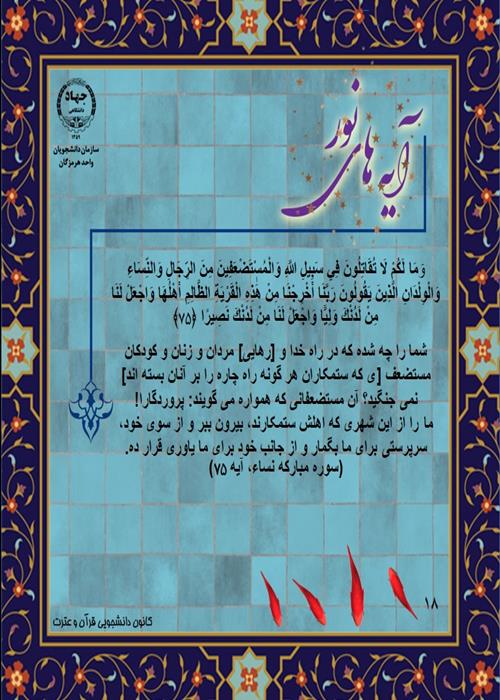 آیه های نور
جهاد
دانشگاهی
۱۳۵۹
سازمان دانشجویان
واحد هرمزگان
وَ مَا لَكُمْ لَا تُقَاتِلُونَ فِي سَبِيلِ اللَّهِ وَالْمُسْتَضْعَفِينَ مِنَ الرِّجَالِ وَالنِّسَاءِ
وَالْوِلْدَانِ الَّذِينَ يَقُولُونَ رَبَّنَا أَخْرِجْنَا مِنْ هَذِهِ الْقَرْيَةِ الظَّالِمِ أَهْلُهَا وَاجْعَلْ لَنَا
مِنْ لَدُنْكَ وَلِيًّا وَاجْعَلْ لَنَا مِنْ لَدُنْكَ نَصِيرًا ﴿۷۵﴾
شما را چه شده که در راه خدا و [رهایی] مردان و زنان و کودکان
مستضعف [ی که ستمکاران هر گونه راه چاره را بر آنان بسته اند]
نمی جنگید؟ آن مستضعفانی که همواره می گویند: پروردگارا!
ما را از این شهری که اهلش ستمکارند، بیرون ببر و از سوی خود،
سرپرستی برای ما بگمار و از جانب خود برای ما یاوری قرار ده.
(سوره مبارکه نساء، آیه ۷۵)
۱۸
کانون دانشجویی قرآن و عترت